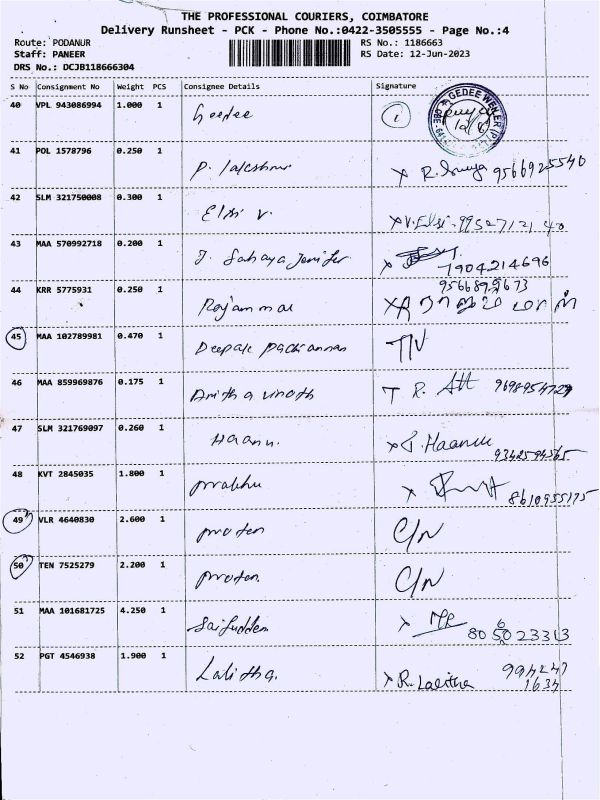 THE PROFESSIONAL COURIERS, COIMBATORE
Delivery Runsheet - PCK - Phone No.:0422-3505555 - Page No.:4
Route: PODANUR RS No.: 1186663
Staff: PANEER RS Date: 12-Jun-2023
DRS No.: DCJB118666304
S No Consignment No Weight PCS Consignee Details Signature
40 VPL 943086994 1.000 1 Geedee
41 POL 1578796 0.250 1 P. lakshmi R. 9566925540
42 SLM 321750008 0.300 1 Elsi v. x V. Elsi.
43 MAA 570992718 0.200 1 J. Sahaya Jenifer x 7904214696
44 KRR 5775931 0.250 1 Rajammal
45 MAA 102789981 0.470 1 Deepak pachiannan
46 MAA 859969876 0.175 1 Anitha vinoth
47 SLM 321769097 0.260 1 Haanu.
48 KVT 2845035 1.800 1 prabhu x 8610955175
49 VLR 4640830 2.600 1 C/N
50 TEN 7525279 2.200 1 C/N
51 MAA 101681725 4.250 1 Saifudden
52 PGT 4546938 1.900 1 Lalitha. x R. Lalitha